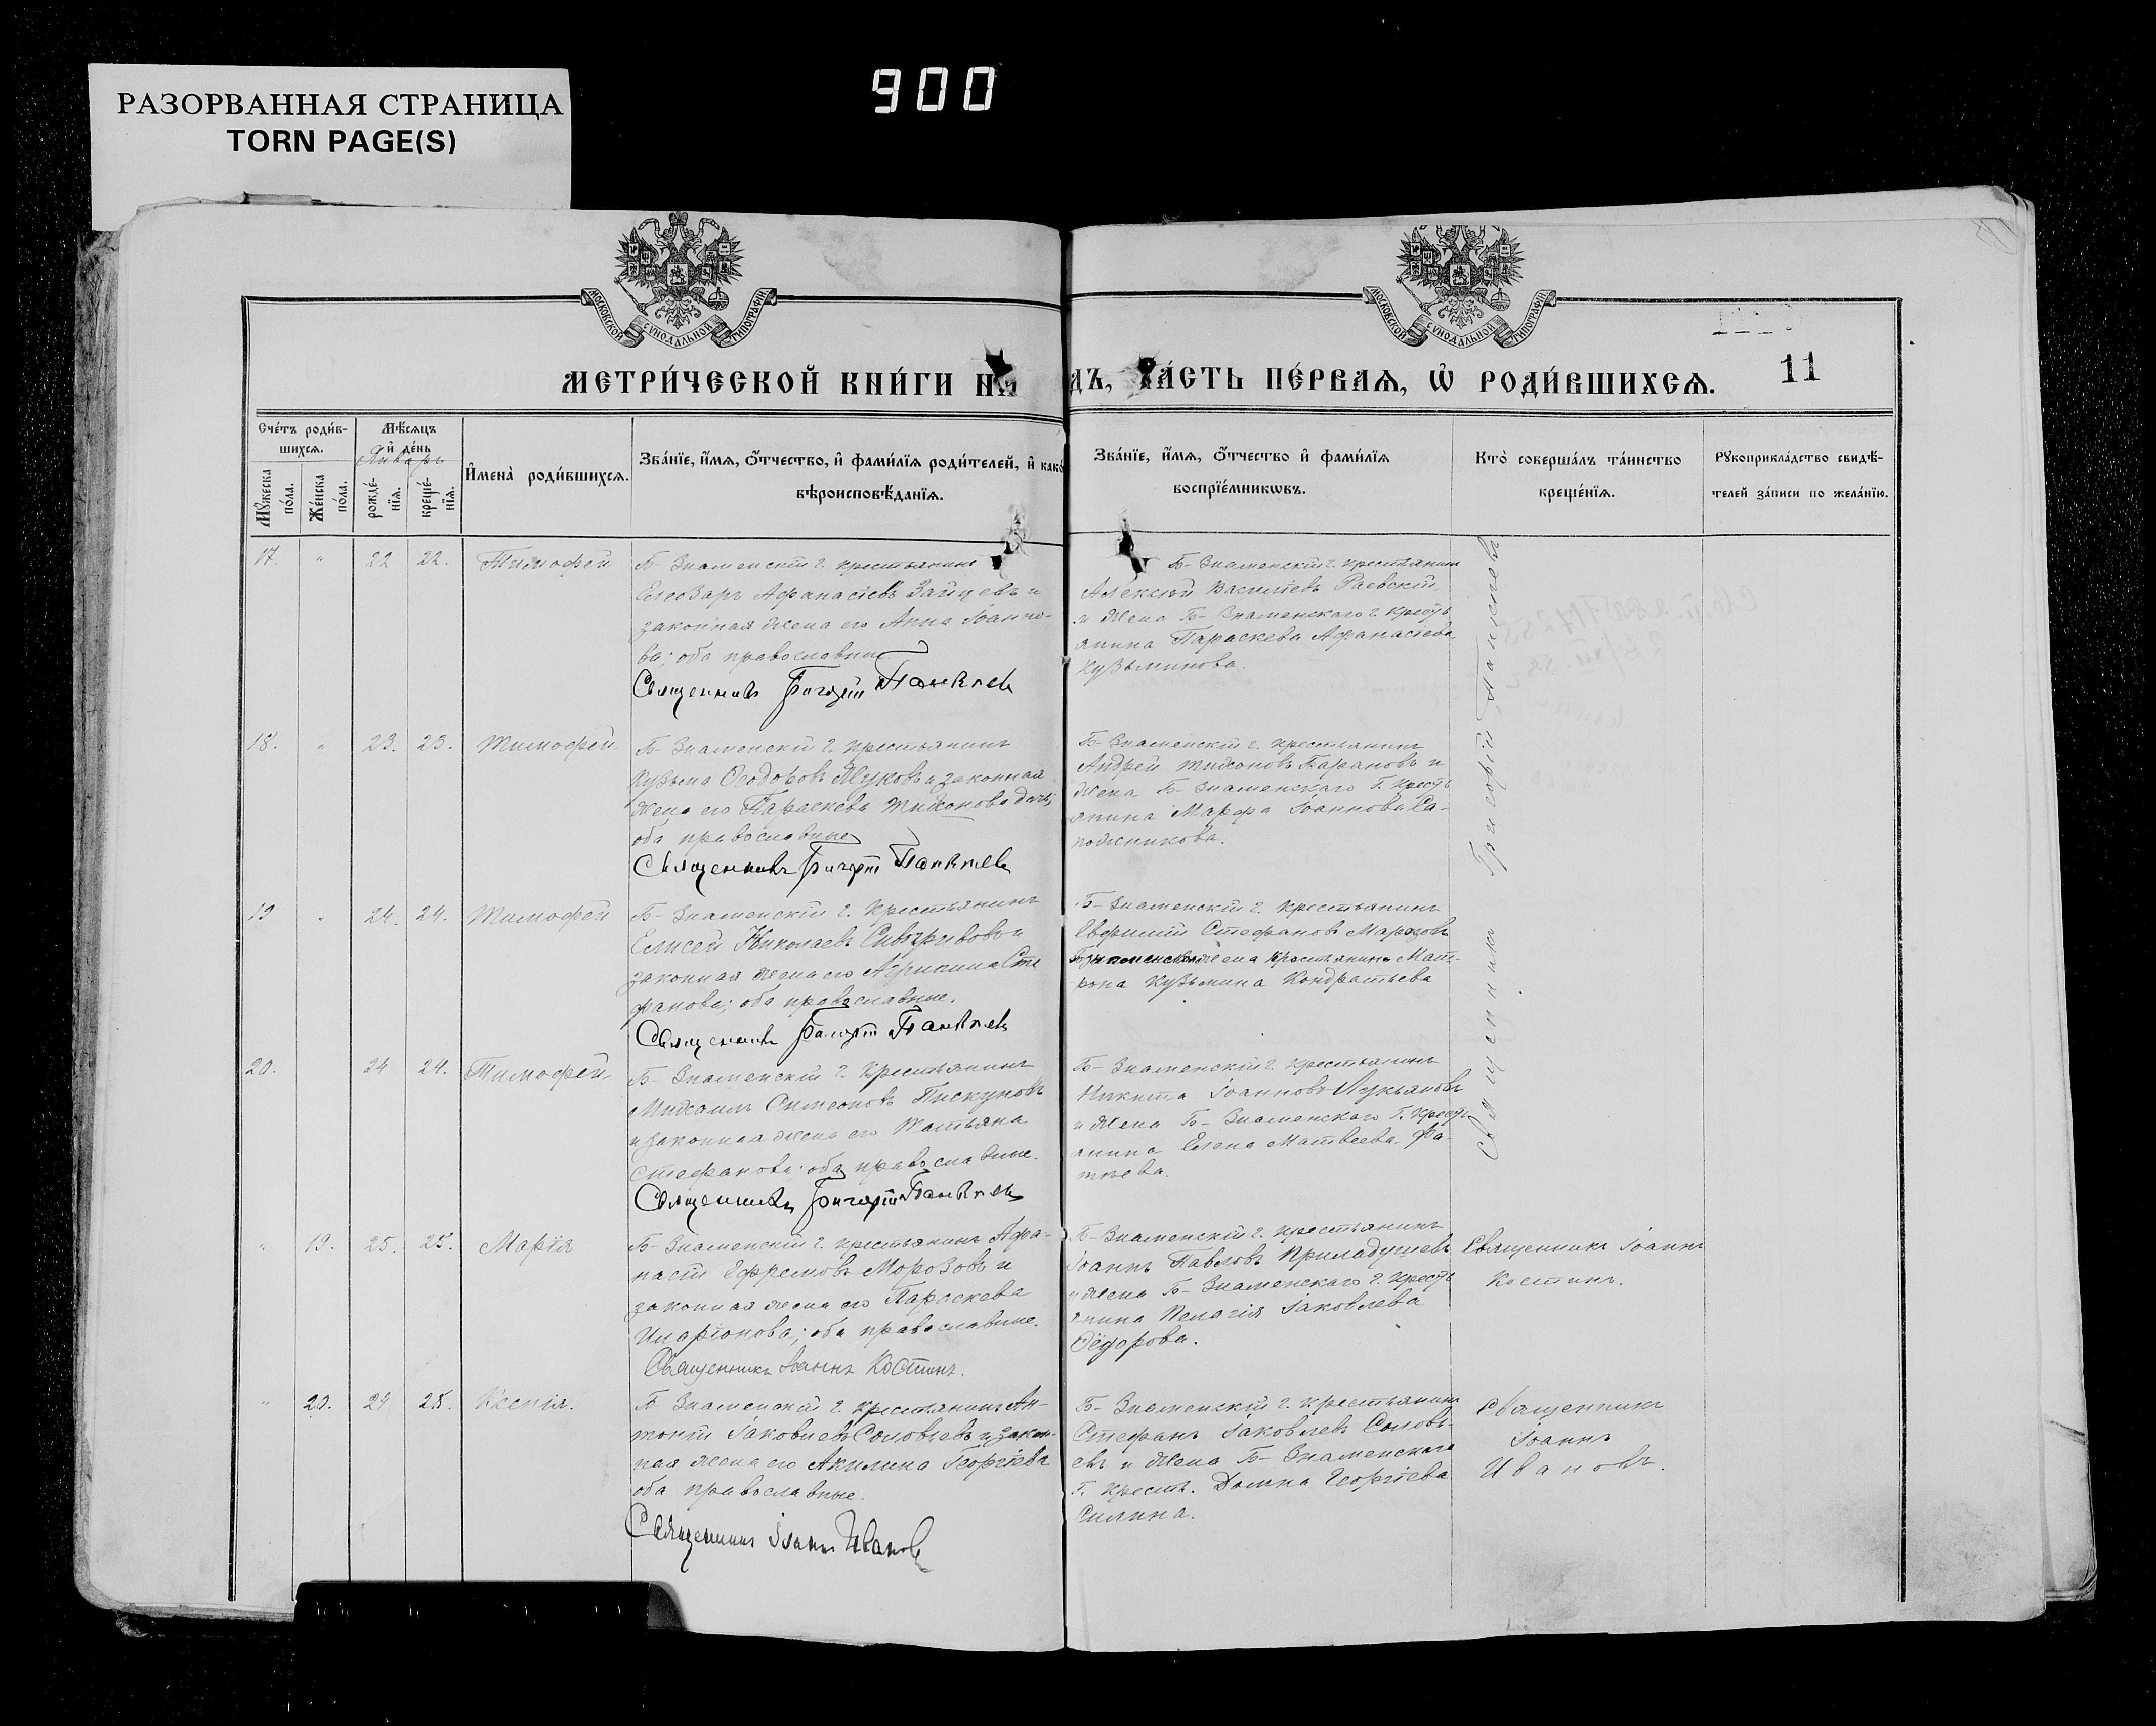 900
РАЗОРВАННАЯ СТРАНИЦА
TORN PAGE(S)
МОСКОВСКОЙ СѴНОДАЛЬНОЙ ТИПОГРАФІИ
МОСКОВСКОЙ СѴНОДАЛЬНОЙ ТИПОГРАФІИ
МЕТРИ́ЧЕСКОЙ КНИ́ГИ НА
ДЪ, ЧА́СТЬ ПЕ́РВАѦ, Ѡ҆ РОДИ́ВШИХСѦ.
11
Сче́тъ роди́в-
шихсѧ.
Мꙋ́жеска по́ла.
Же́нска по́ла.
Мѣ́сѧцъ
и҆ де́нь
Январь
рожде́-нїѧ.
креще́-нїѧ.
И҆мена̀ роди́вшихсѧ.
Зва́нїе, и҆́мѧ, ѻ҆́тчество, и҆ фами́лїѧ роди́телей, и҆ како́
вѣроисповѣ́данїѧ.
Зва́нїе, и҆́мѧ, ѻ҆́тчество и҆ фами́лїѧ
воспрїе́мникѡвъ.
Кто̀ соверша́лъ та́инство
креще́нїѧ.
Рꙋкоприкла́дство свидѣ́-
телей за́писи по жела́нїю.
17. " 22 22. Тимофей
Б-Знаменскій г. крестьянинъ
Елеозаръ Афанасіевъ Зайцевъ и
законная жена его Анна Іоанно-
ва; оба православные.
Священникъ Григорій
Б-Знаменскій г. крестьянинъ
Алексѣй Василіевъ Раевскій
и жена Б-Знаменскаго г. кресть
янина Параскева Афанасіева
Кузьминова.
Священникъ Григорій
18. " 23. 23. Тимофей
Б-Знаменскій г. крестьянинъ
Кузьма Ѳеодоровъ Жуковъ и законная
жена его Параскева Тихонова дочь;
оба православные
Священникъ Григорій
Б-Знаменскій г. крестьянинъ
Андрей Тихоновъ Барановъ и
жена Б-Знаменскаго г. кресть
янина Марфа Іоаннова Са-
пожникова.
19 " 24. 24. Тимофей
Б-Знаменскій г. крестьянинъ
Елисей Николаевъ и
законная жена его Сте
фанова; оба православные.
Священникъ Григорій
Б-Знаменскій г. крестьянинъ
Евфимій Стефановъ Морозовъ
жена крестьянина Мат-
рона Кузьмина Кондратьева
20. 24 24. Тимофей
Б-Знаменскій г. крестьянинъ
Михаилъ Симеоновъ Пискуновъ
и законная жена его Татьяна
Стефанова; оба православные.
Священникъ Григорій
Б-Знаменскій г. крестьянинъ
Никита Іоанновъ Лукьяновъ
и жена Б-Знаменскаго г. кресть
янина Елена Матвеева Фа-
теева.
" 19. 25. 25. Марія
Б-Знаменскій г. крестьянинъ Афа-
насій Ефремовъ Морозовъ и
законная жена его Параскева
Иларіонова; оба православные.
Священникъ Іоаннъ Костинъ.
Б-Знаменскій г. крестьянинъ
Іоаннъ Павловъ
и жена Б-Знаменскаго г. кресть
янина Пелагія Іаковлева
Ѳедорова.
Священникъ Іоаннъ
Костинъ.
" 20. 24 25. Ксенія.
Б Знаменскій г. крестьянинъ Ан-
тоній Іаковлевъ Соловьевъ и закон-
ная жена его Акилина Георгіева
оба православные.
Священникъ Іоаннъ Ивановъ
Б-Знаменскій г. крестьянинъ
Стефанъ Іаковлевъ Соловь-
евъ и жена Б-Знаменскаго
г. крест. Домна Георгіева
Силина.
Священникъ
Іоаннъ
Ивановъ.